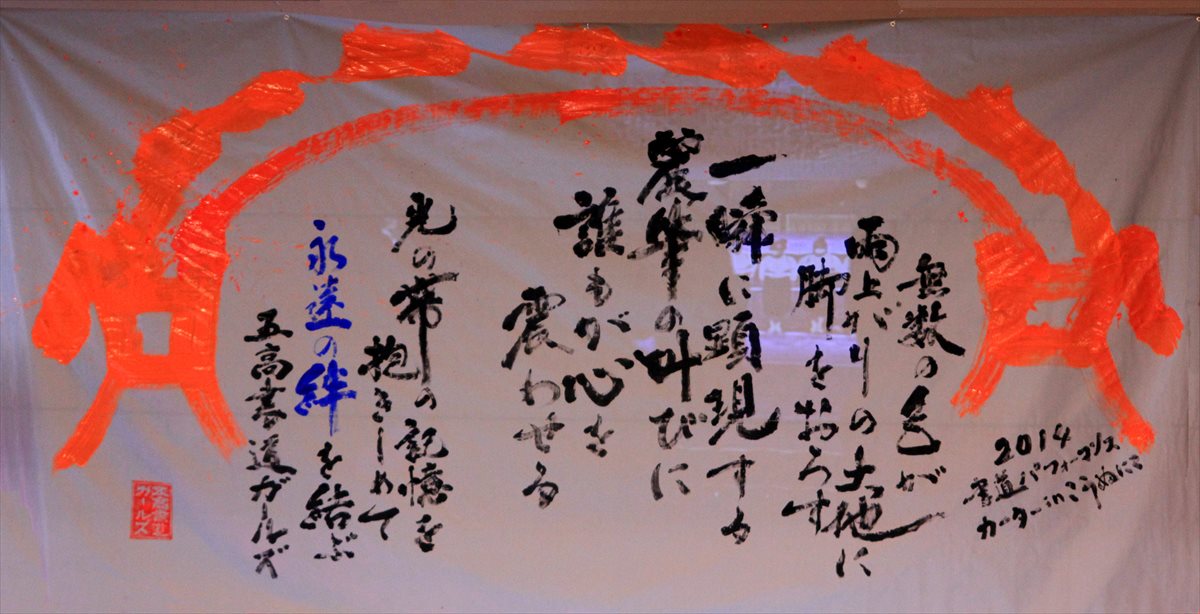 2014
書道パフォーマンス
無数の色が
雨上がりの大地に
脚をおろす
一瞬に顕現する
麗華の叫びに
誰もが心を
震わせる
光の帯の記憶を
抱きしめて
永遠の絆を結ぶ
五高書道ガールズ
五高書道
ガールズ